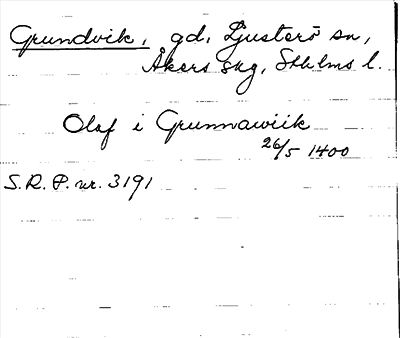 Grundvik, gd, Ljusterö sn,
Åkers skg, Sthlms l.
Olaf i Grunnawiik
26/5 1400
S.R.P. nr. 3191